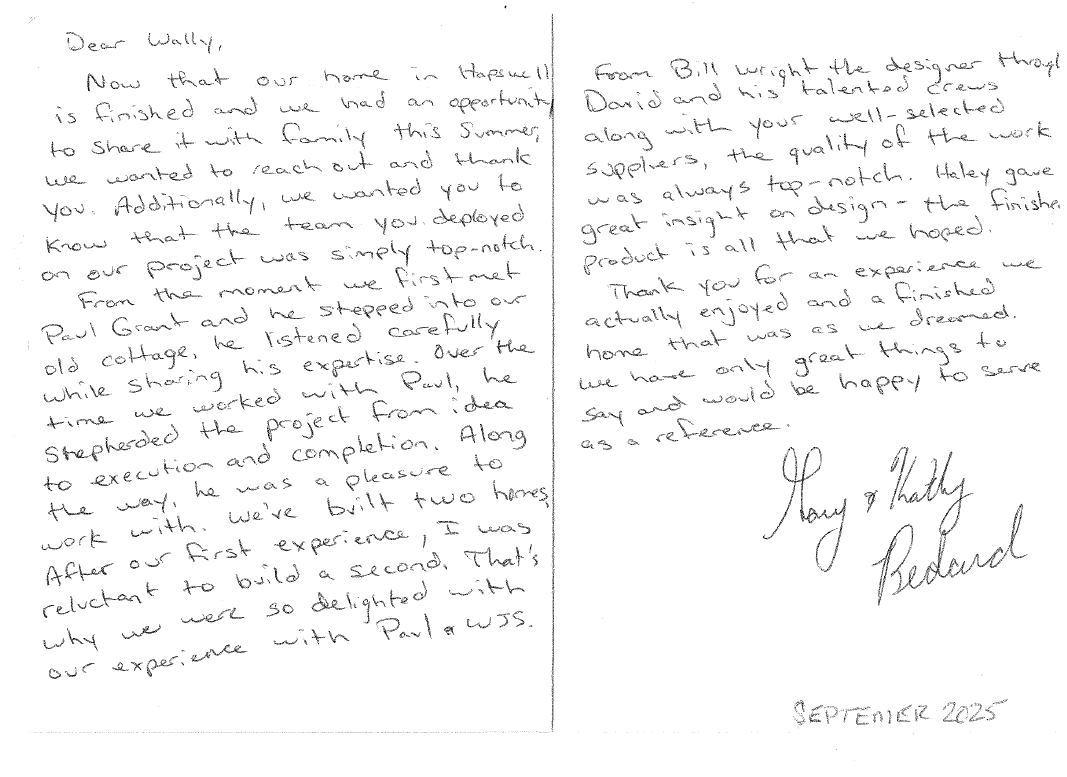 Dear Wally,
Now that our home in Hapswell
is finished and we had an opportunity
to share it with family this Summer,
we wanted to reach out and thank
you. Additionally, we wanted you to
know that the team you deployed
on our project was simply top-notch.
From the moment we first met
Paul Grant and he stepped into our
old cottage, he listened carefully
while sharing his expertise. Over the
time we worked with Paul, he
Shepherded the project from idea
to execution and completion. Along
the way, he was a pleasure to
work with. We've built two homes,
After our first experience, I was
reluctant to build a second. That's
why we were so delighted with
our experience with Paul & WJS.
From Bill Wright the designer through
David and his talented crews
along with your well-selected
suppliers, the quality of the work
was always top-notch. Haley gave
great insight on design - the finishe
product is all that we hoped.
Thank you for an experience we
actually enjoyed and a finished
home that was as we dreamed.
We have only great things to
say and would be happy to serve
as a reference.
& Kathy
Bedard
SEPTEMBER 2025